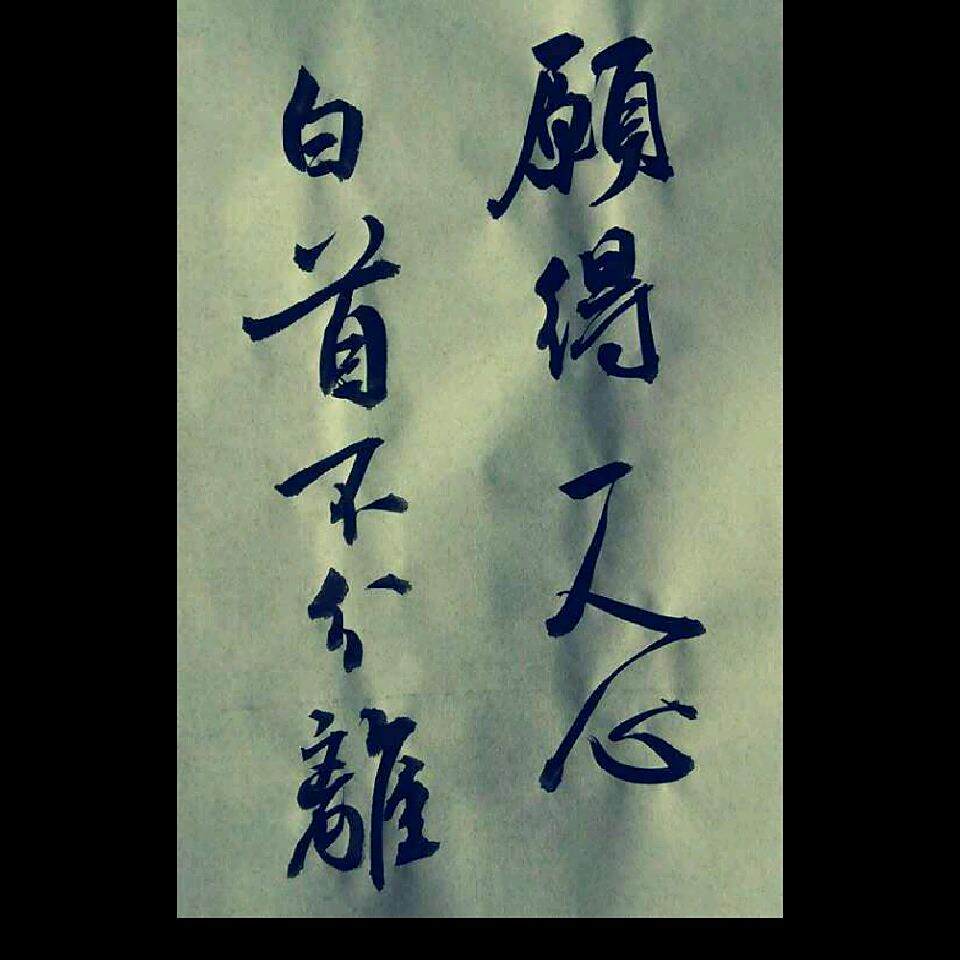 願得一人心
白首不分離